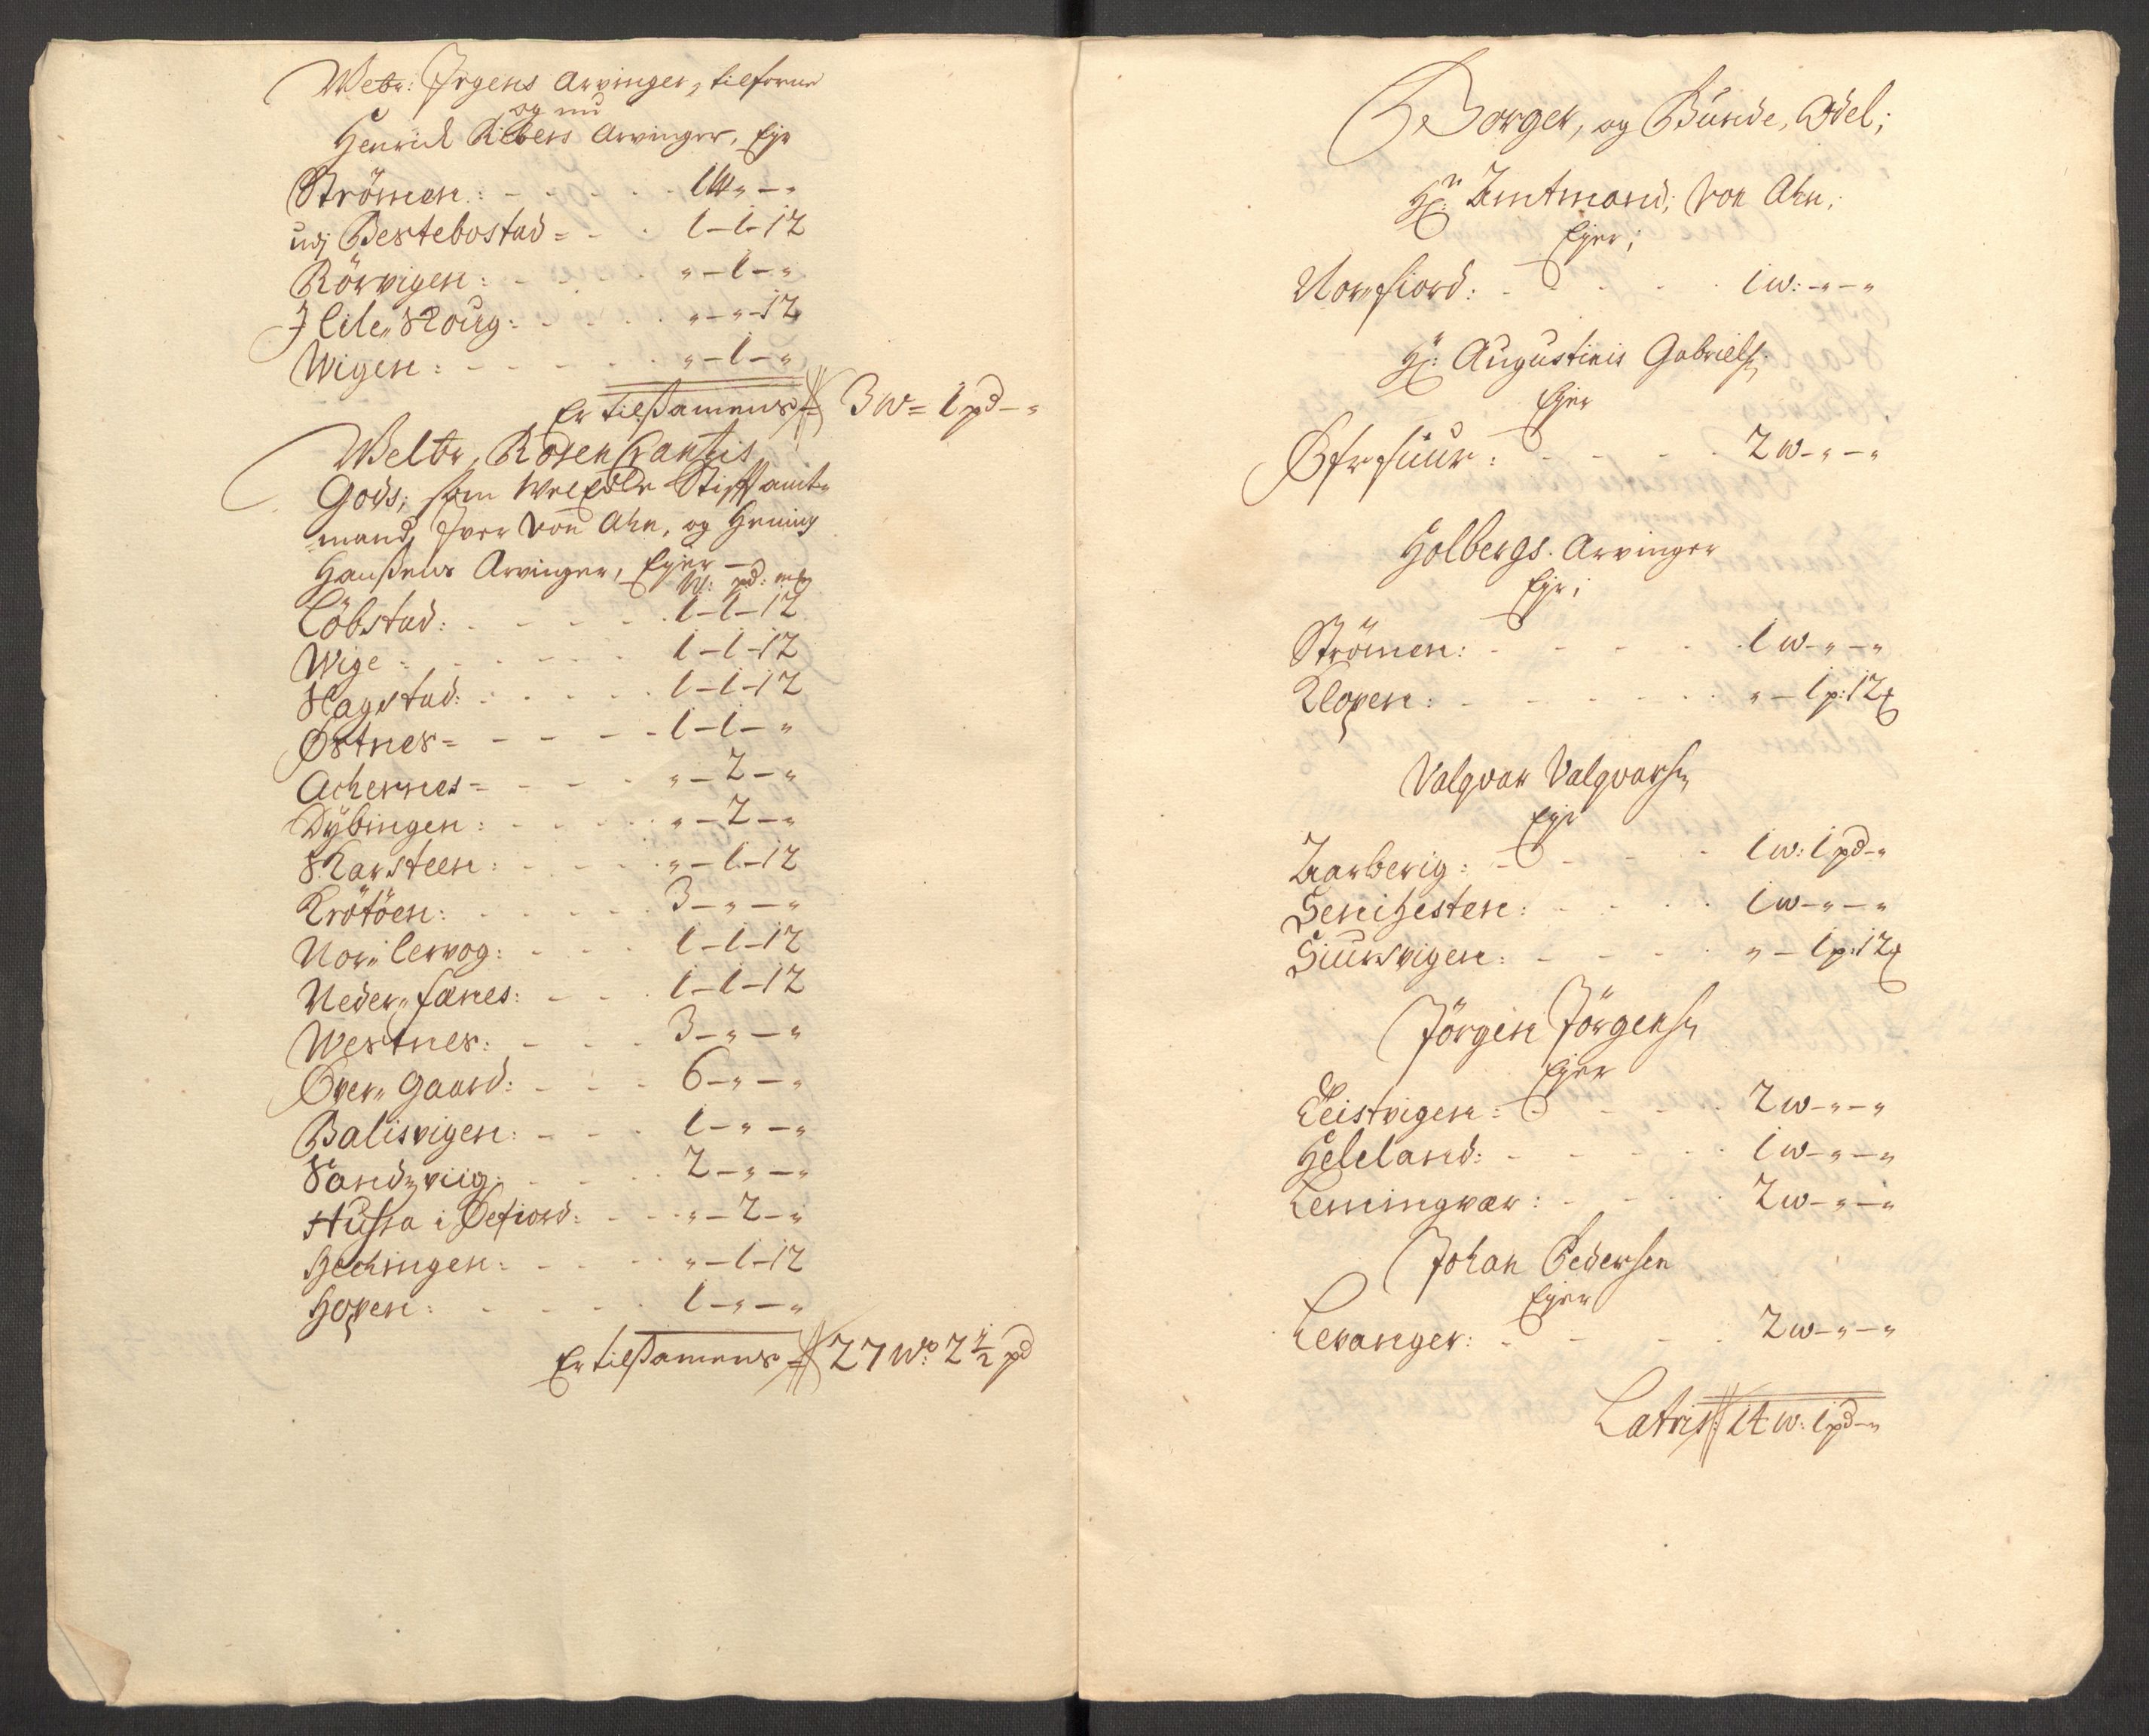 Welb: Jrgens Arvinger, tilforne
og nu
Henrich Ribers Arvinger, Ejer
Strömen: 1 W „ — „
udj Bestebostad = 1 — 1 — 12
Rörvigen: „ — 1 — „
J Lile Skoug: „ — „ — 12
Wigen: „ — 1 — „
Er tilsamens 3 W = 1 pd — „
Welbr. Rosen Crantzis
Gods; som WelEdle Stifftamt„
mand, Iver von Ahn, og Hening
Hanssens Arvinger, Ejer —
W: pd: mk
Löbstad: 1 — 1 — 12
Wige = 1 — 1 — 12
Hagstad: 1 — 1 — 12
Østnes = 1 — 1 — „
Achernes = „ — 2 — „
Dÿbingen: „ — 2 — „
Skarsteen: „ — 1 — 12
Krötöen: 3 — „ — „
Nor„ Lervog: 1 — 1 — 12
Neder„ fænes: 1 — 1 — 12
Westnes: 3 — „ — „
Øver„ Gaard: 6 — „ — „
Balisvigen: 1 — „ — „
Sand„ viig: 2 — „ — „
Hussa i Oefiord: „ — 2 — „
Hechingen: „ — 1 — 12
Hopen: 1 — „ — „
Er tilsamens 27 W: 2 ½ pd
Borger, og Bunde, Odel;
Hr: Amtmand; von Ahn;
Ejer;
Nor„ fiord: 1 w: — „ — „
Hr: Augustinis Gabriels:
Ejer
2 w — „ — „
Holbergs. Arvinger
Ejr;
Strömen: 1 w — „ — „
Klopen: „ — 1 p: 12
Valqvar Valqvars:
Ejr
Aarberig: 1 w: 1 pd — „
Senihesten: 1 w — „ — „
Siursvigen: „ — 1 p: 12
Jörgen Jörgens:
Ejer
Teistvigen: 2 w — „ — „
Heleland: 1 w — „ — „
Lemingvær: 2 w — „ — „
Johan Pedersen
Ejer
Levanger: 2 w — „ — „
Latris: 14 w: 1 pd — „